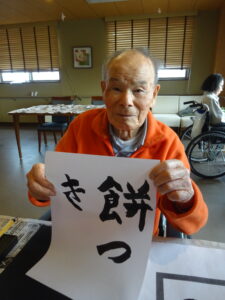 餅つ
き